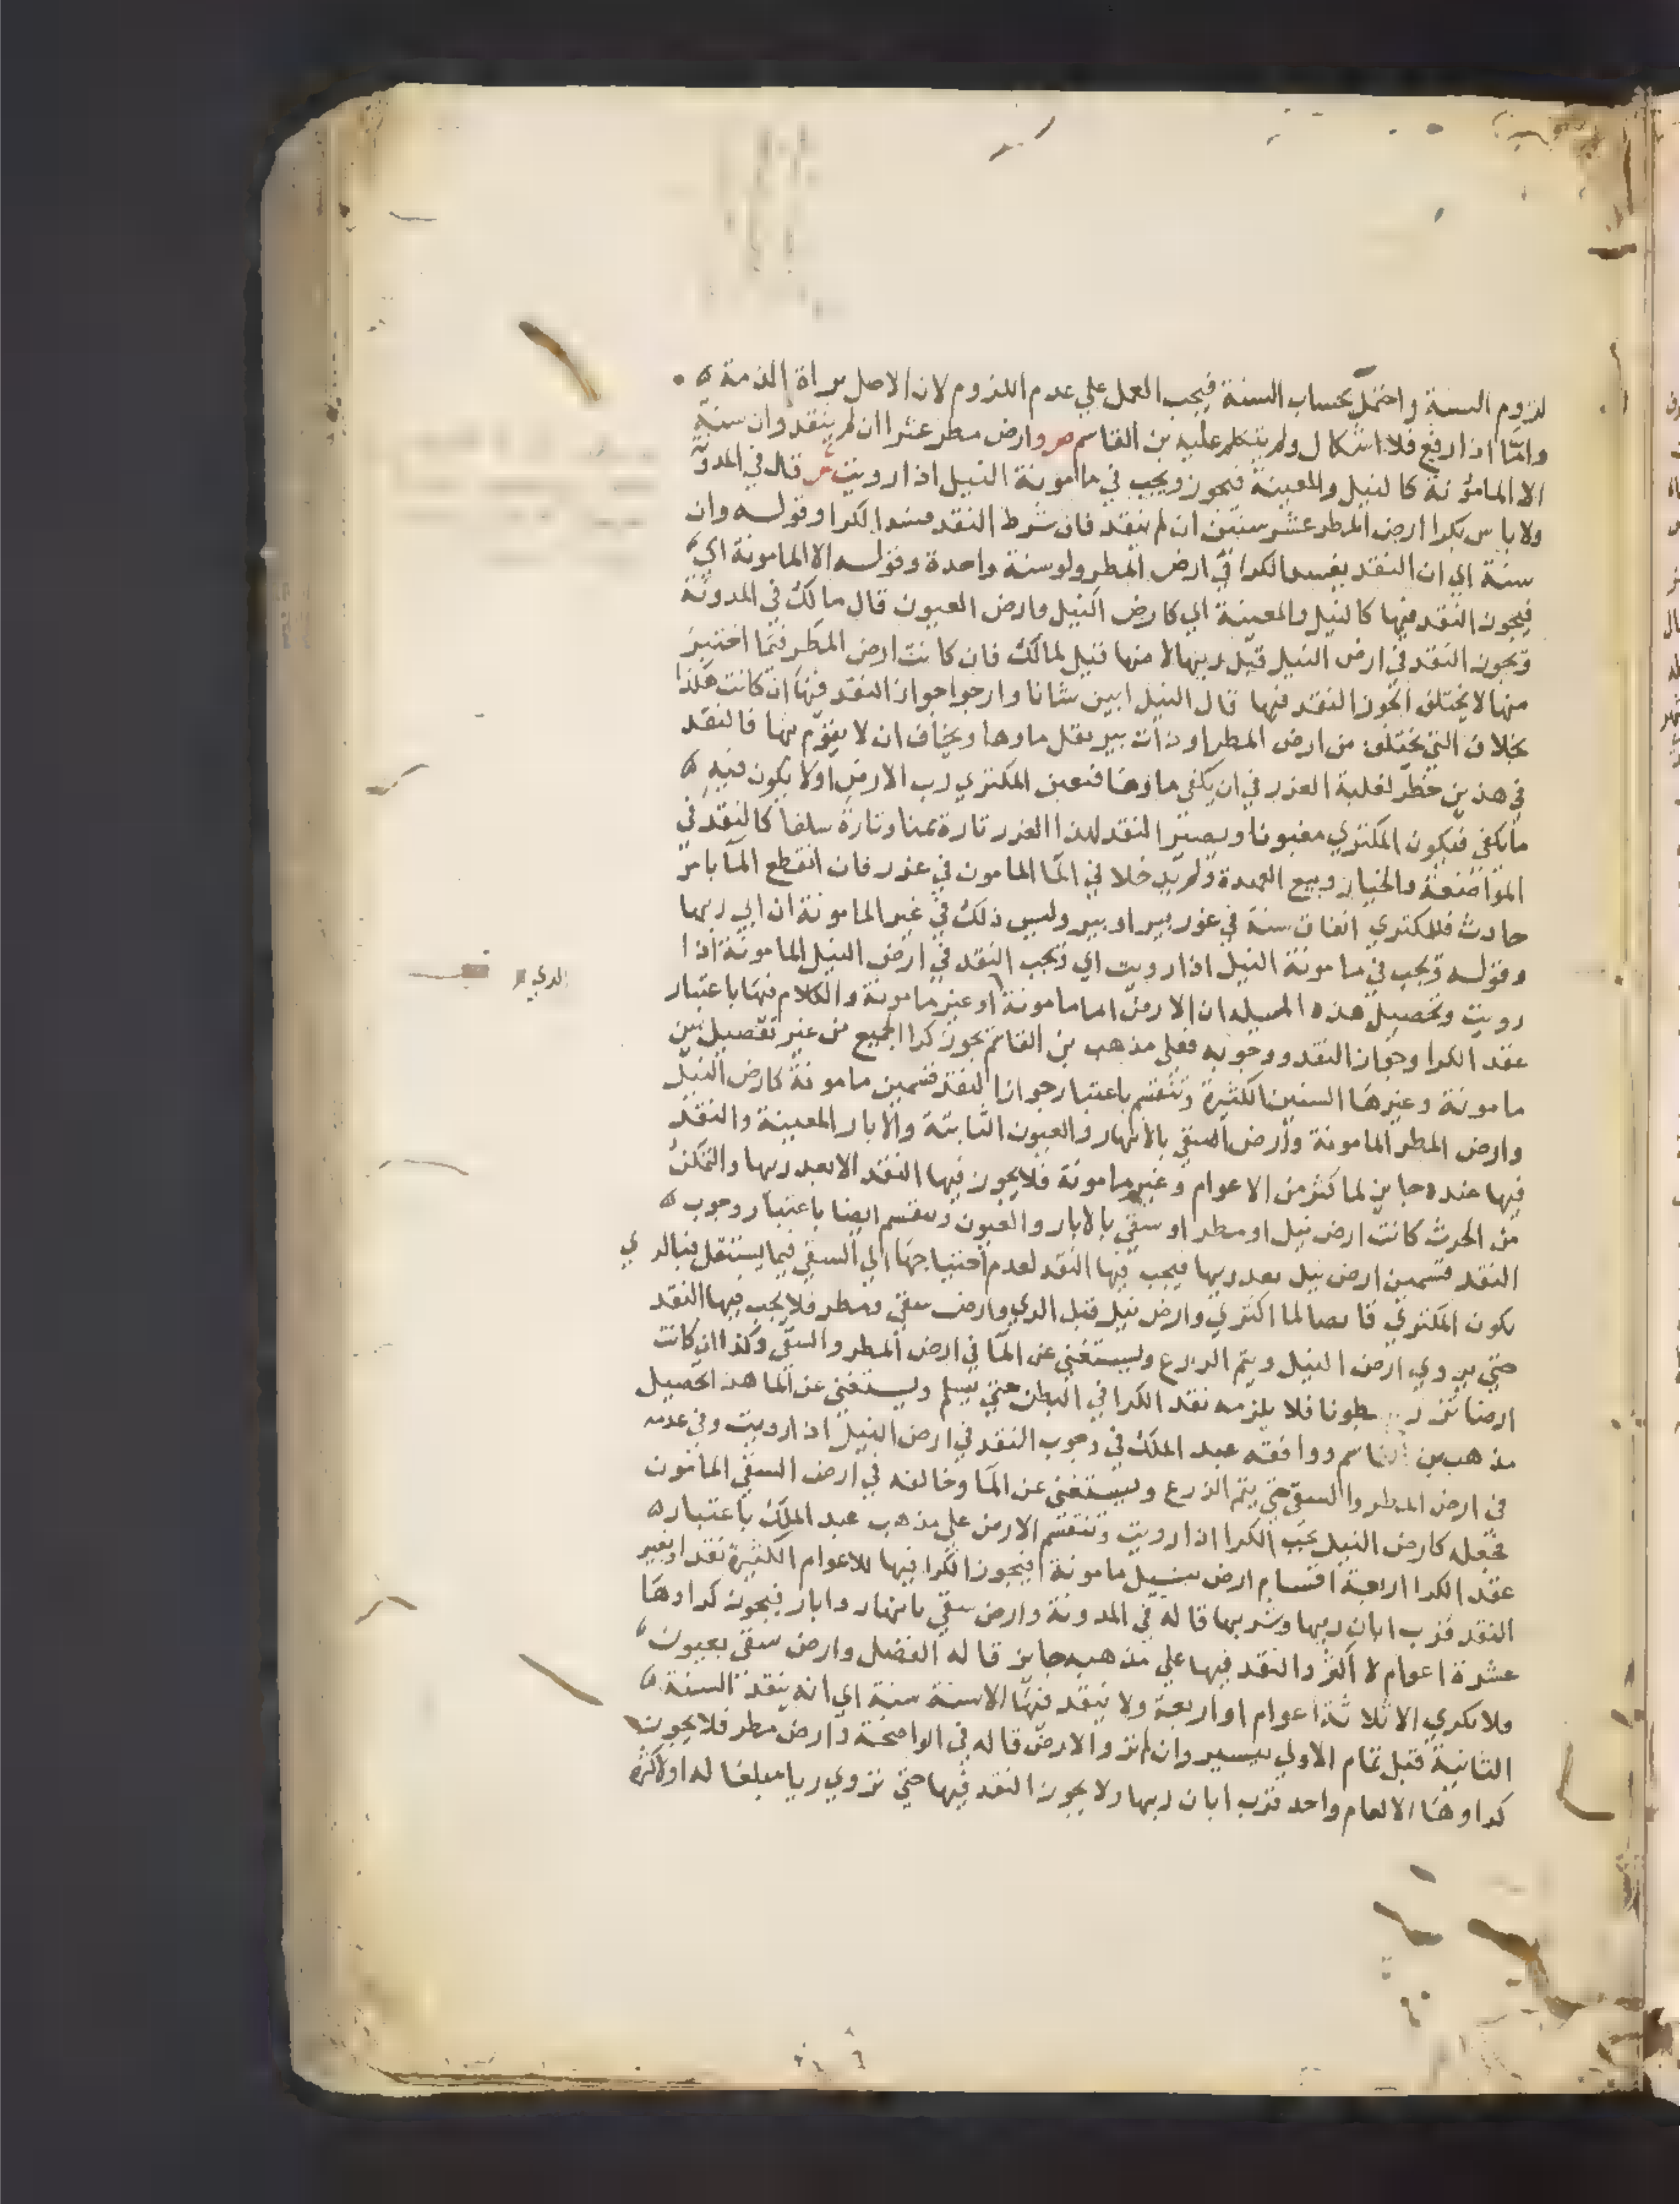 لزوم السنة واحتمل بحساب السنة فيجب العمل علي عدم اللزوم لان الاصل براة الذمة ه
وامّا اذا رفع فلا اشكال ولم يتكلم عليه بن القاسم ص وارض مطر عشرا ان لم ينقد وان سنة
الا المامونة كالنيل والمعينة فيجوز ويجب في مامونة النيل اذا رويت ش قال في المدونة
ولاباس بكرا ارض المطر عشر سنين ان لم ينقد فان شرط النقد فسد الكرا وقوله وان
سنة اي ان النقد يفسد الكرا في ارض المطر ولو سنة واحدة وقوله الا المامونة اي
فيجوز النقد فيها كالنيل والمعينة اي كارض النيل وارض العيون قال مالك في المدونة
ويجوز النقد في ارض النيل قبل ريها لامنها قيل لمالك فان كانت ارض المطر فيما اختبر
منها لا يختلف ايجوز النقد فيها قال النيل ابين شانا وارجوا جواز النقد فيها ان كانت هكذا
بخلاف التي يختلف من ارض المطر او ذات بير يقل ماوها ويخاف ان لا يقوم بها فالنقد
في هذين خطر لغلبة الغرر في ان يكفي ماوها فيغبن المكتري رب الارض اولا يكون فيه ه
ما يكفي فيكون المكتري مغبونا ويصير النقد لهذا الغرر تارة ثمنا وتارة سلفا كالنقد في
المواضعة والخيار وبيع العهدة ولم يدخلا في الما المامون في غرر فان انقطع الما بامر
حادث فللمكتري انفاق سنة في غور بير او بير وليس ذلك في غير المامونة ان ابي ربها
وقوله ويجب في مامونة النيل اذا رويت اي ويجب النقد في ارض النيل المامونة اذا
رويت وتحصيل هذه المسيلة ان الارض اما مامونة او غير مامونة والكلام فيها باعتبار
عقد الكرا وجواز النقد ووجوبه فعلي مذهب بن القاسم يجوز كرا الجميع من غير تفصيل بين
مامونة وغيرها السنين الكثيرة وتنقسم باعتبار جواز النقد قسمين مامونة كارض النيل
وارض المطر المامونة وارض السقي بالانهار والعيون الثابتة والابار المعينة والنقد
فيها عنده جايز لما كثر من الاعوام وغير مامونة فلا يجوز فيها النقد الا بعد ريها والتمكن
من الحرث كانت ارض نيل او مطر او سقي بالابار والعيون وتنقسم ايضا باعتبار وجوب ه
النقد قسمين ارض نيل بعد ريها فيجب فيها النقد لعدم احتياجها الي السقي فيما يستقل فبالري
يكون المكتري قابضا لما اكتري وارض نيل قبل الري وارض سقي ومطر فلا يجب فيها النقد
حتي يروي ارض النيل ويتم الزرع ويستغني عن الما في ارض المطر والسقي وكذا ان كانت
ارضا تزرع بطونا فلا يلزمه نقد الكرا في البطن حتي يسلم ويستغني عن الما هذا تحصيل
مذهب بن القاسم ووافقه عبد الملك في وجوب النقد في ارض النيل اذا رويت وفي عدمه
في ارض المطر والسقي حتي يتم الزرع ويستغني عن الما وخالفه في ارض السقي المامون
فجعله كارض النيل يجب الكرا اذا رويت وتنقسم الارض علي مذهب عبد الملك باعتبار ه
عقد الكرا اربعة اقسام ارض نيل مامونة فيجوز الكرا فيها للاعوام الكثيرة نقدا وبغير
النقد قرب ابان ريها وشربها قاله في المدونة وارض سقي بانهار وابار فيجوز كراوها
عشرة اعوام لا اكثر والنقد فيها علي مذهبه جايز قاله الفضل وارض سقي بعيون
فلا تكري الا ثلاثة اعوام او اربعة ولا ينقد فيها الا سنة سنة اي انه ينقد السنة ه
الثانية قبل تمام الاولي بيسير وان لم تروا الارض قاله في الواضحة وارض مطر فلا يجوز
كراوها الا لعام واحد قرب ابان ريها ولا يجوز النقد فيها حتي تروي ريا مبلغا له او لاكثره
الري